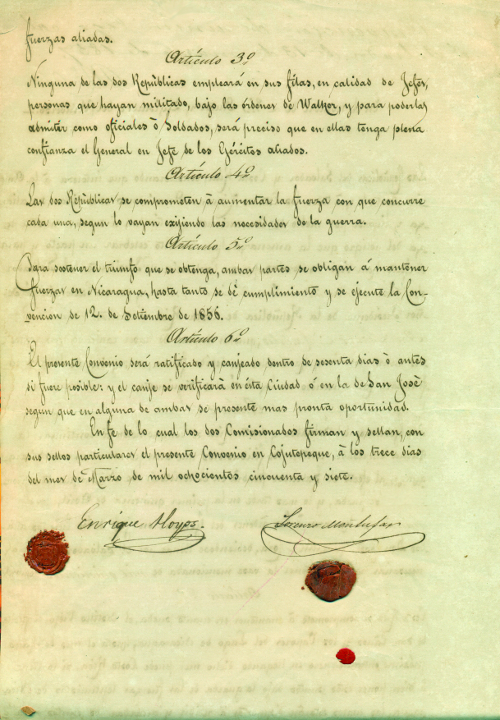 fuerzas aliadas.
Artículo 3º
Ninguna de las dos Repúblicas empleará en sus filas, en calidad de Jefes,
personas que hayan militado, bajo las órdenes de Walker, y para poderlas
admitir como oficiales ò Soldados, será preciso que en ellas tenga plena
confianza el General en Jefe de los Ejércitos aliados.
Artículo 4º
Las dos Repúblicas se comprometen á aumentar la fuerza con que concurre
cada una, segun lo vayan exijiendo las necesidades de la guerra.
Artículo 5º
Para sostener el triunfo que se obtenga, ambas partes se obligan á mantener
fuerzas en Nicaragua, hasta tanto se dé cumplimiento y se ejecute la Con-
vencion de 12. de Setiembre de 1856.
Artículo 6º
El presente Convenio será ratificado y canjeado dentro de sesenta dias ò antes
si fuere posible; y el canje se verificará en ésta Ciudad ó en la de San José
segun que en alguna de ambas se presente mas pronta oportunidad.
En fe de lo cual los dos Comisionados firman y sellan, con
sus sellos particulares el presente Convenio en Cojutepeque, á los trece dias
del mes de Marzo de mil ochocientos cincuenta y siete.
Enrique Hoyos.
Lorenzo Montufar